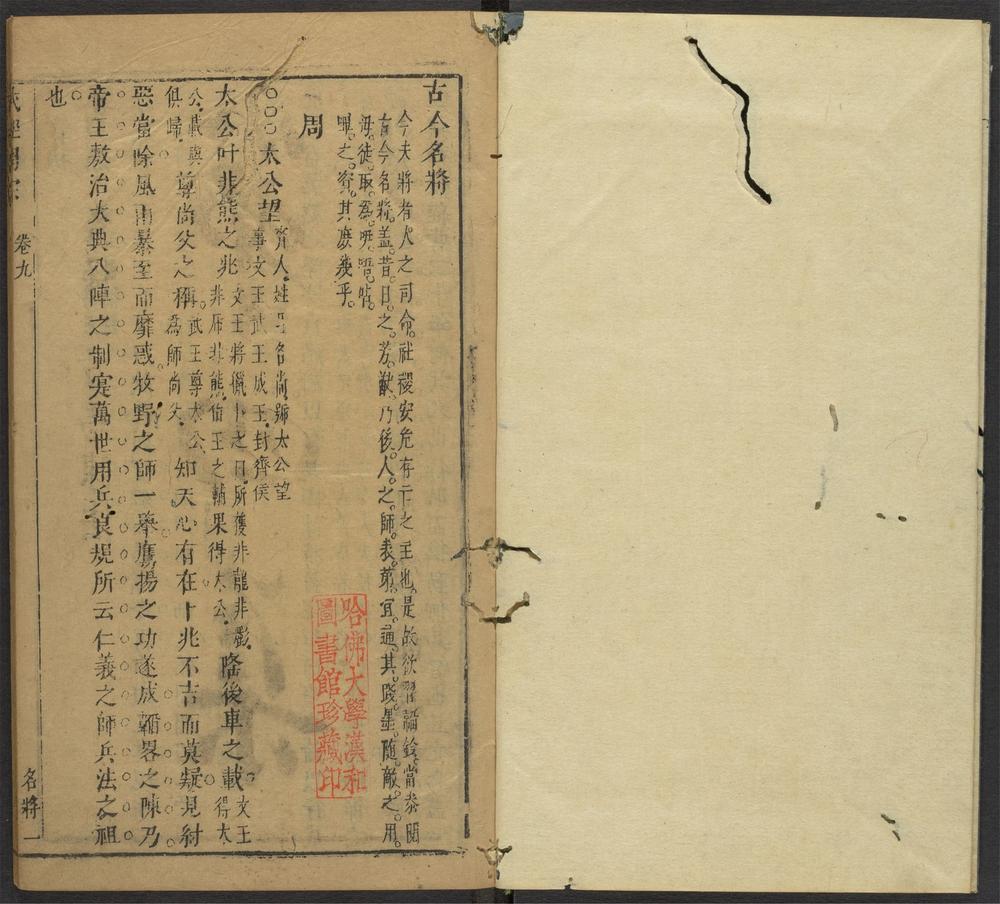 古今名將
今夫將者人之司命社稷安危存亡之主也是故欲習韜鈐當恭閱
古今名將蓋昔日之芳猷乃後人之師表第宜通其踐墨隨敵之用
毋徒取為呀唔呫
嗶之資其庶幾乎
周
○○○太公望齊人姓呂名尚號太公望
事文王武王成王封齊侯
太公叶非熊之兆文王將獵卜之曰所獲非龍非彲
非熊非羆伯王之輔果得太公隆後車之載文王
得太
公載與
俱歸尊尚父之稱武王尊太公
為師尚父知天心有在十兆不吉而莫疑見紂
惡當除風雨暴至而靡惑牧野之師一舉鷹揚之功遂成韜畧之陳乃
帝王敷治大典八陣之制寔萬世用兵良規所云仁義之師兵法之祖
也
卷九
名將一
哈佛大學漢和
圖書館珍藏印